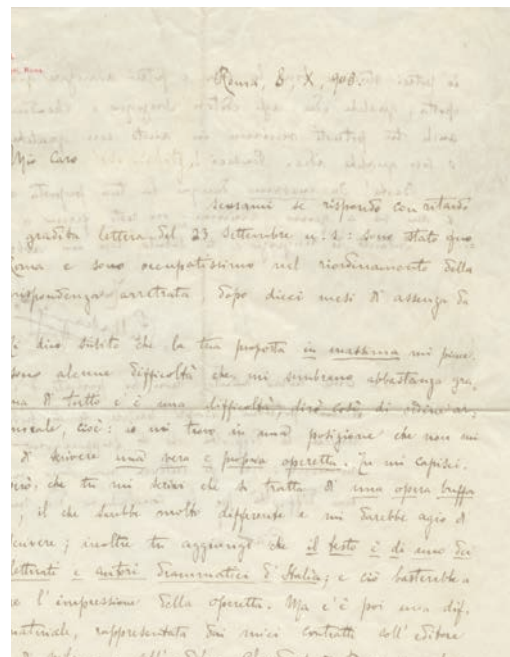 Roma
Roma, 8, X, 908.
Mio Caro
scusami se rispondo con ritardo
gradita lettera del 23 Settembre u. s.: sono stato quo
Roma e sono occupatissimo nel riordinamento della
rispondenza arretrata dopo dieci mesi di assenza da
dirò subito che la tua proposta in massima mi piace.
sono alcune difficoltà che mi sembrano abbastanza gra.
ma di tutto c'è una difficoltà, dirò così, di ordine ar,
morale, cioè: io mi trovo in una posizione che non mi
di scrivere una vera e propria operetta. Tu mi capisci.
però, che tu mi scrivi che si tratta di una opera buffa
, il che sarebbe molto differente e mi darebbe agio di
scrivere; inoltre tu aggiungi che il testo è di uno dei
letterati e autori drammatici d'Italia; e ciò basterebbe a
e l'impressione della operetta. Ma c'è poi una dif.
materiale, rappresentata dai miei contratti coll'editore